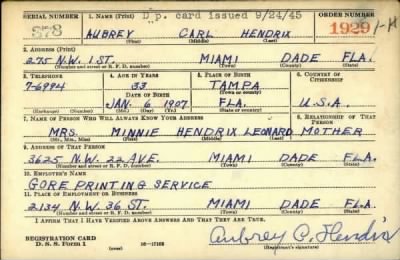 Dup. card issued 9/24/45
SERIAL NUMBER 1. NAME (Print) ORDER NUMBER
578 AUBREY CARL HENDRIX 1929 1-H
(First) (Middle) (Last)
2. ADDRESS (Print)
275 N.W. 1 ST. MIAMI DADE FLA.
(Number and street or R. F. D. number) (Town) (County) (State)
3. TELEPHONE 4. AGE IN YEARS 5. PLACE OF BIRTH 6. COUNTRY OF CITIZENSHIP
7-6994 33 TAMPA
DATE OF BIRTH (Town or county)
JAN. 6 1907 FLA. U.S.A.
(Exchange) (Number) (Mo.) (Day) (Yr.) (State or country)
7. NAME OF PERSON WHO WILL ALWAYS KNOW YOUR ADDRESS 8. RELATIONSHIP OF THAT PERSON
MRS. MINNIE HENDRIX LEONARD MOTHER
(Mr., Mrs., Miss) (First) (Middle) (Last)
9. ADDRESS OF THAT PERSON
3625 N.W. 22 AVE. MIAMI DADE FLA.
(Number and street or R. F. D. number) (Town) (County) (State)
10. EMPLOYER'S NAME
GORE PRINTING SERVICE
11. PLACE OF EMPLOYMENT OR BUSINESS
2134 N.W. 36 ST. MIAMI DADE FLA.
(Number and street or R. F. D. number) (Town) (County) (State)
I AFFIRM THAT I HAVE VERIFIED ABOVE ANSWERS AND THAT THEY ARE TRUE.
REGISTRATION CARD
D. S. S. Form 1 (over) 16-17105 Aubrey C. Hendrix
(Registrant's signature)